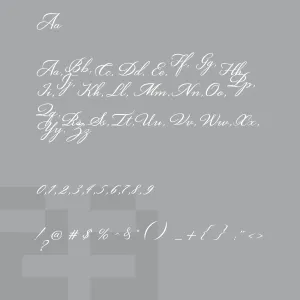 Aa
Aa, Bb, Cc, Dd, Ee, Ff, Gg, Hh,
Ii, Jj, Kk, Ll, Mm, Nn, Oo, Pp,
Qq, Rr, Ss, Tt, Uu, Vv, Ww, Xx,
Yy, Zz
0,1,2,3,4,5,6,7,8,9
! @ # $ % ~ & * ( ) _ + { } : " < >
?